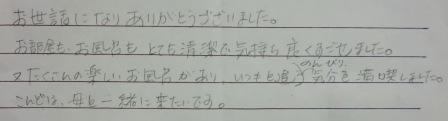 お世話になりありがとうございました。
お部屋も、お風呂も とても清潔で気持ち良くすごせました。
のんびり、
又たくさんの楽しいお風呂があり、いつもと違う気分を満喫しました。
こんどは、母と一緒に来たいです。